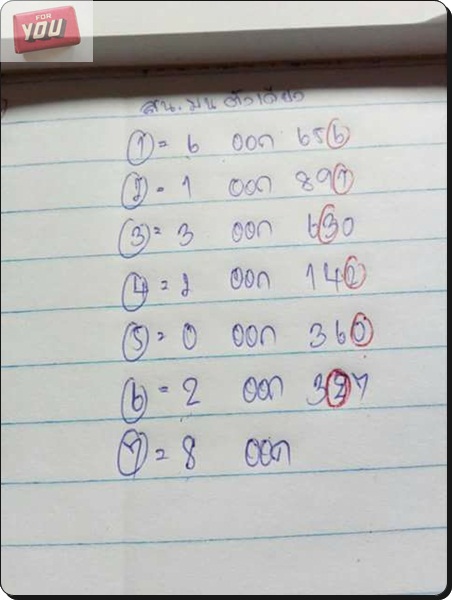 FOR
YOU
สน. มน ตัวเดียว
1 = 6 ออก 656
2 = 1 ออก 891
3 = 3 ออก 630
4 = 2 ออก 142
5 = 0 ออก 360
6 = 2 ออก 327
7 = 8 ออก